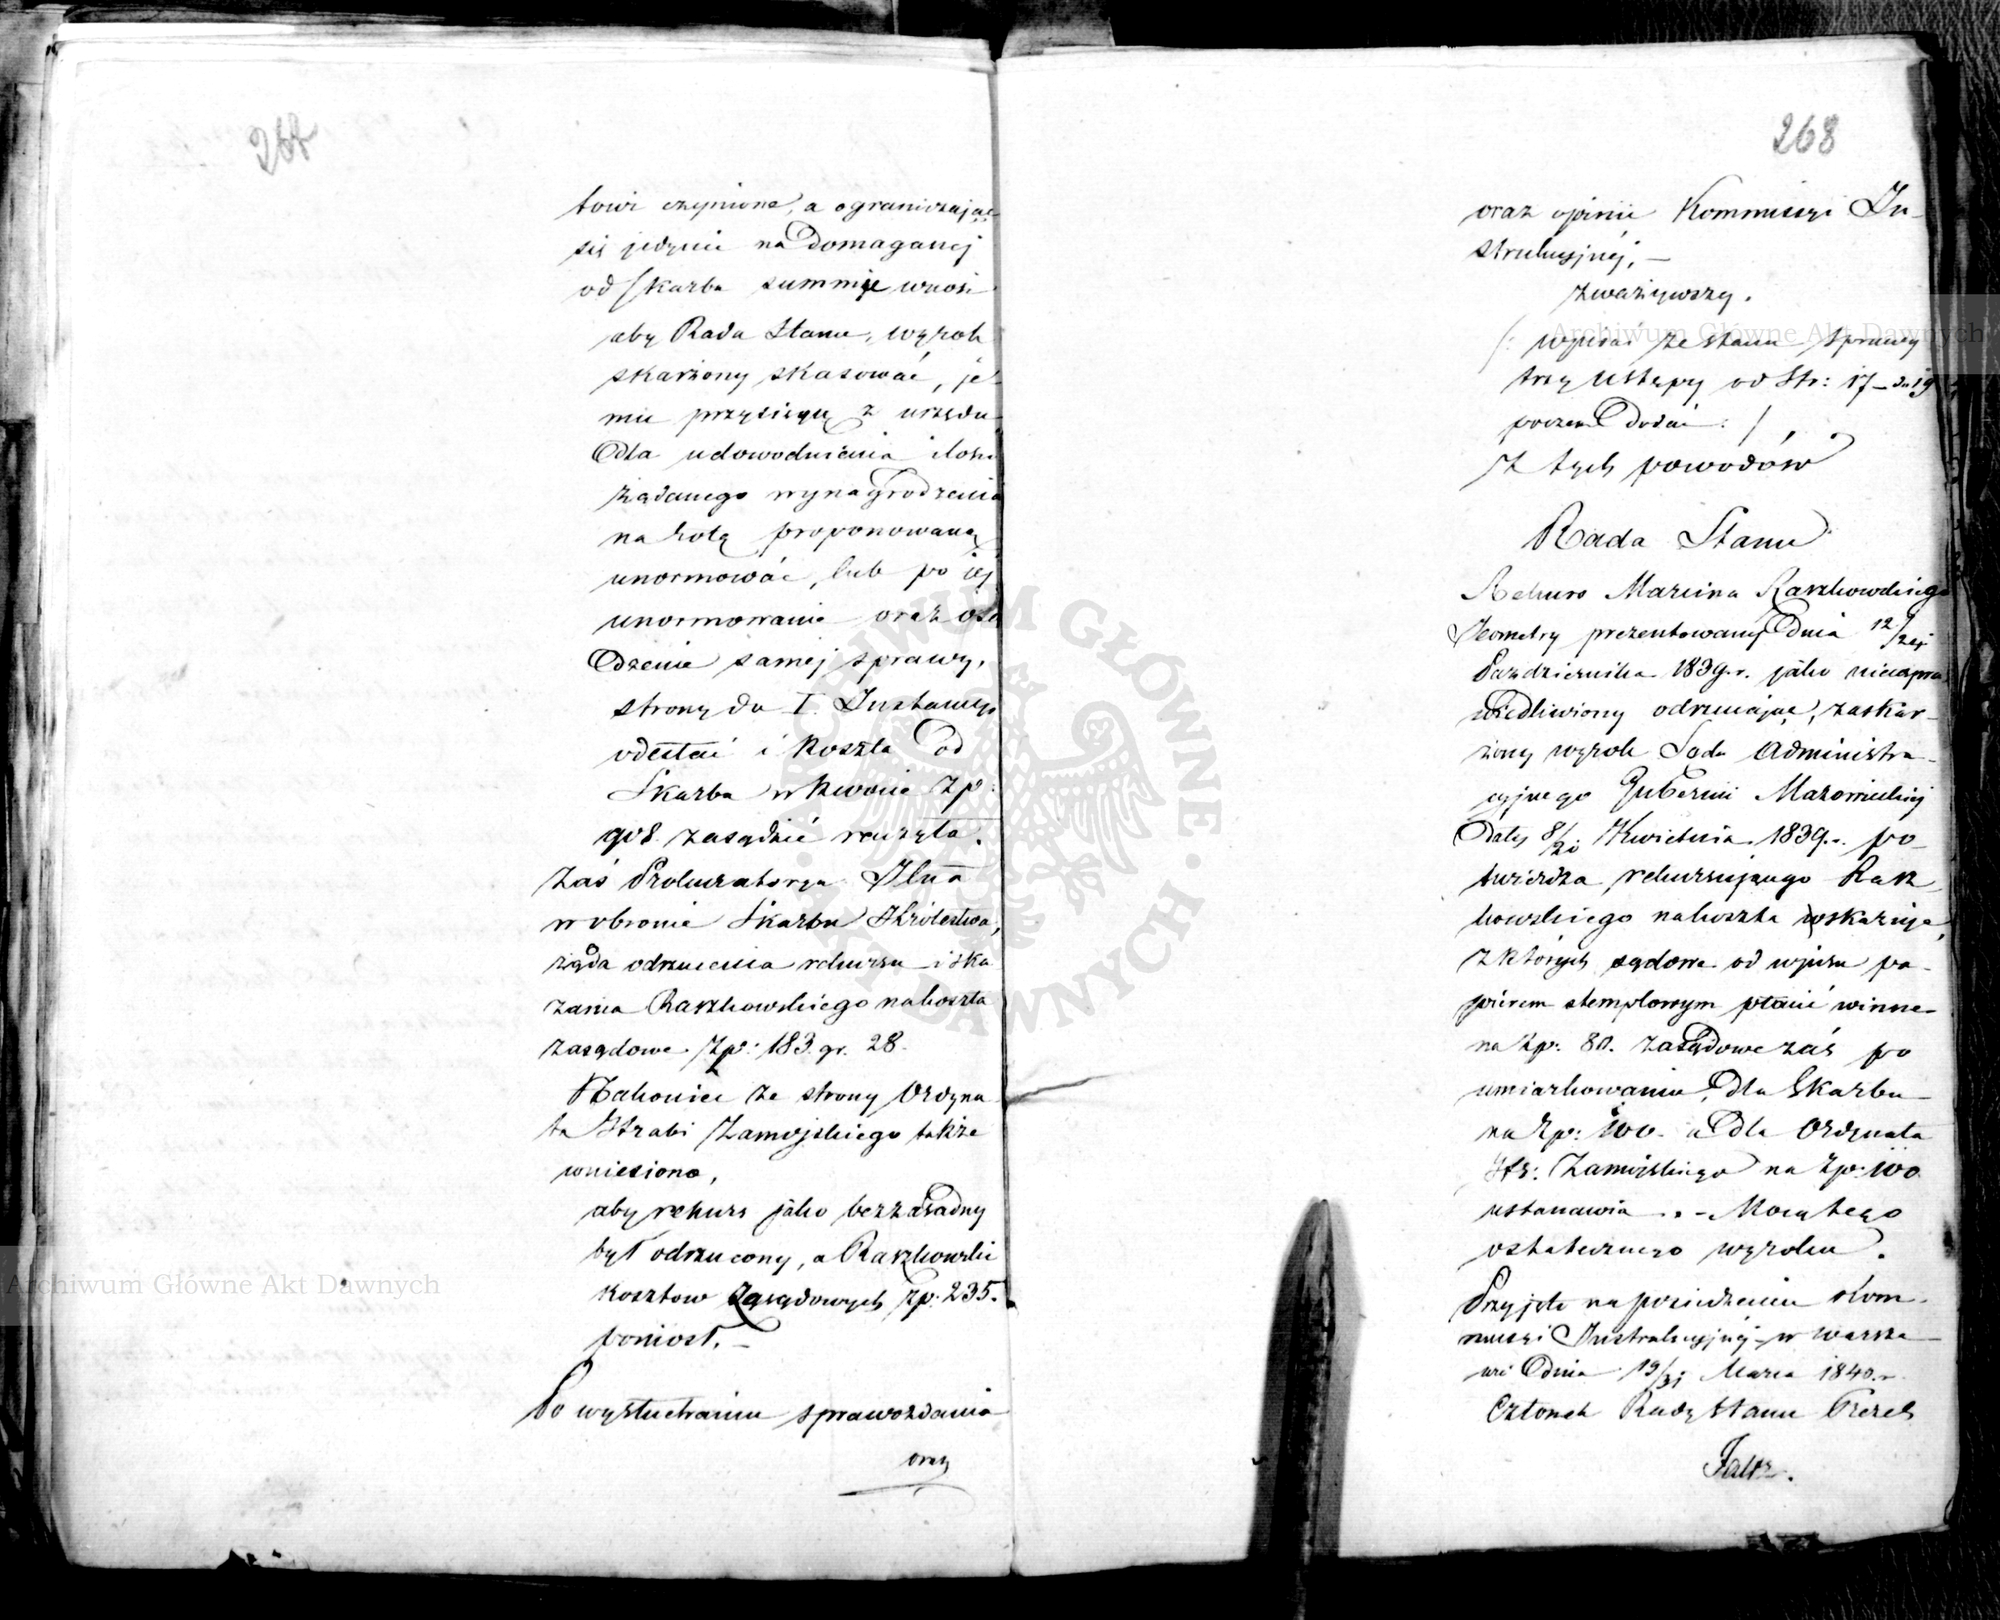 267
towi czynione, a ograniczając
się jedynie na domaganej
od Skarbu summie wnosi
aby Rada Stanu, wyrok
skarżony skasować, je-
mu przysięgę z urzędu
dla udowodnienia ilości
żądanego wynagrodzenia
na rotę proponowaną
unormować, lub po jej
unormowaniu oraz osą
dzenie samej sprawy,
strony do I. Instancyi
odesłać i koszta od
Skarbu w kwocie zp:
908 zasądzić raczyła.
Zaś Prokuratorya Jlna
w obronie Skarbu Królestwa,
żąda odrzucenia rekursu i ska
zania Raszkowskiego na koszta
zasądowe Zp: 183. gr. 28.
Nakoniec ze strony Ordyna
ta Hrabi Zamojskiego także
wniesiono,
aby rekurs jako bezzasadny
był odrzucony, a Raszkowski
kosztow zasądowych Zp: 235.
poniosł. —
Po wysłuchaniu sprawozdania
oraz
268
oraz opinii Kommissyi In-
strukcyjnej, —
zważywszy.
/: wypisać ze stanu sprawy
trzy ustępy od Str: 17 – do 19
poczem dodać: /
Z tych powodów
Rada Stanu
Rekurs Marcina Raszkowskiego
Jeometry prezentowany dnia 12/24
Października 1839. r. jako nieuspra
wiedliwiony odrzucając, zaskar-
żony wyrok Sądu Administra-
cyjnego Gubernii Mazowieckiej
daty 8/20 Kwietnia 1839. r. po-
twierdza, rekursującego Rasz
kowskiego na koszta wskazuje,
z których sądowe od wpisu pa-
pierem stemplowym płacić winne
na Zp: 80. zasądowe zaś po
umiarkowaniu, dla Skarbu
na Zp: 100. a dla Ordynata
Hr: Zamojskiego na Zp: 100
ustanawia. – Mocą tego
ostatecznego wyroku.
Przyjęto na posiedzeniu Kom-
missyi Instrukcyjnej w Warsza-
wie dnia 19/31 Marca 1840. r.
Członek Rady Stanu Prezes